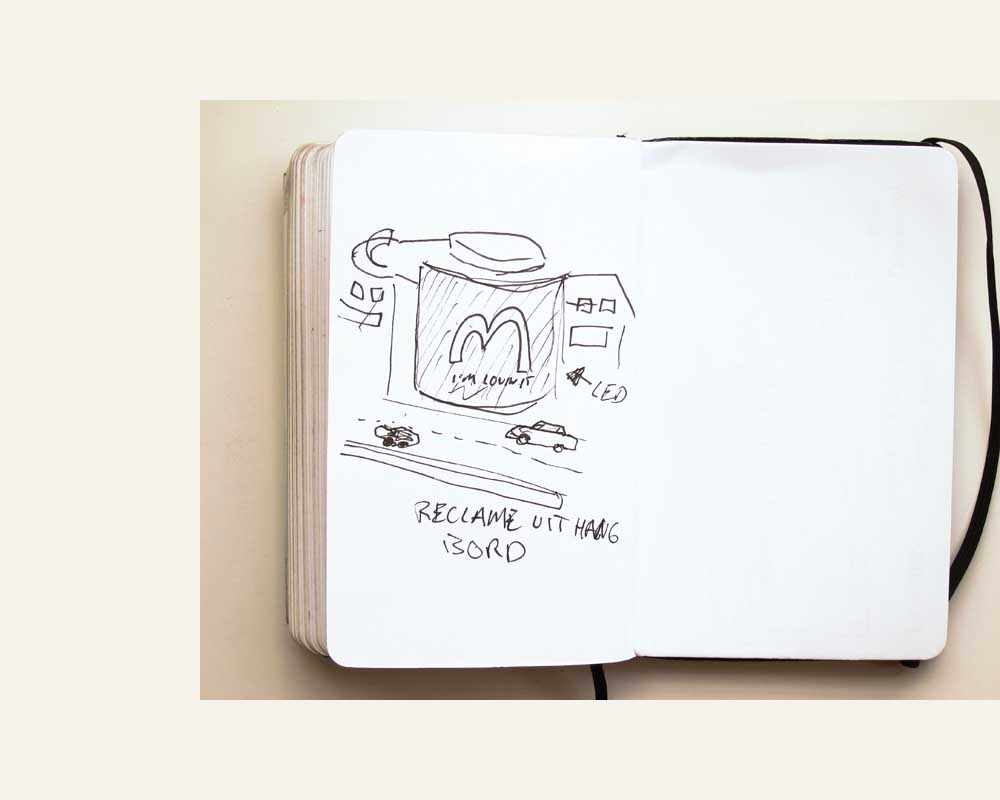 M
I'M LOVIN IT
LED
RECLAME UIT HANG
BORD